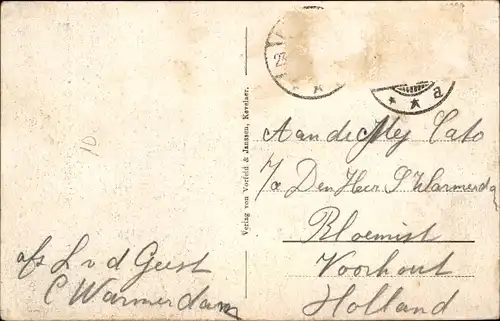 23
a
10
Verlag von Vorfeld & Janssen, Kevelaer.
Aan de Mej Cato
p/a Den Heer S Warmerda
Bloemist
Voorhout
Holland
afs L v d Geest
C Warmerdam